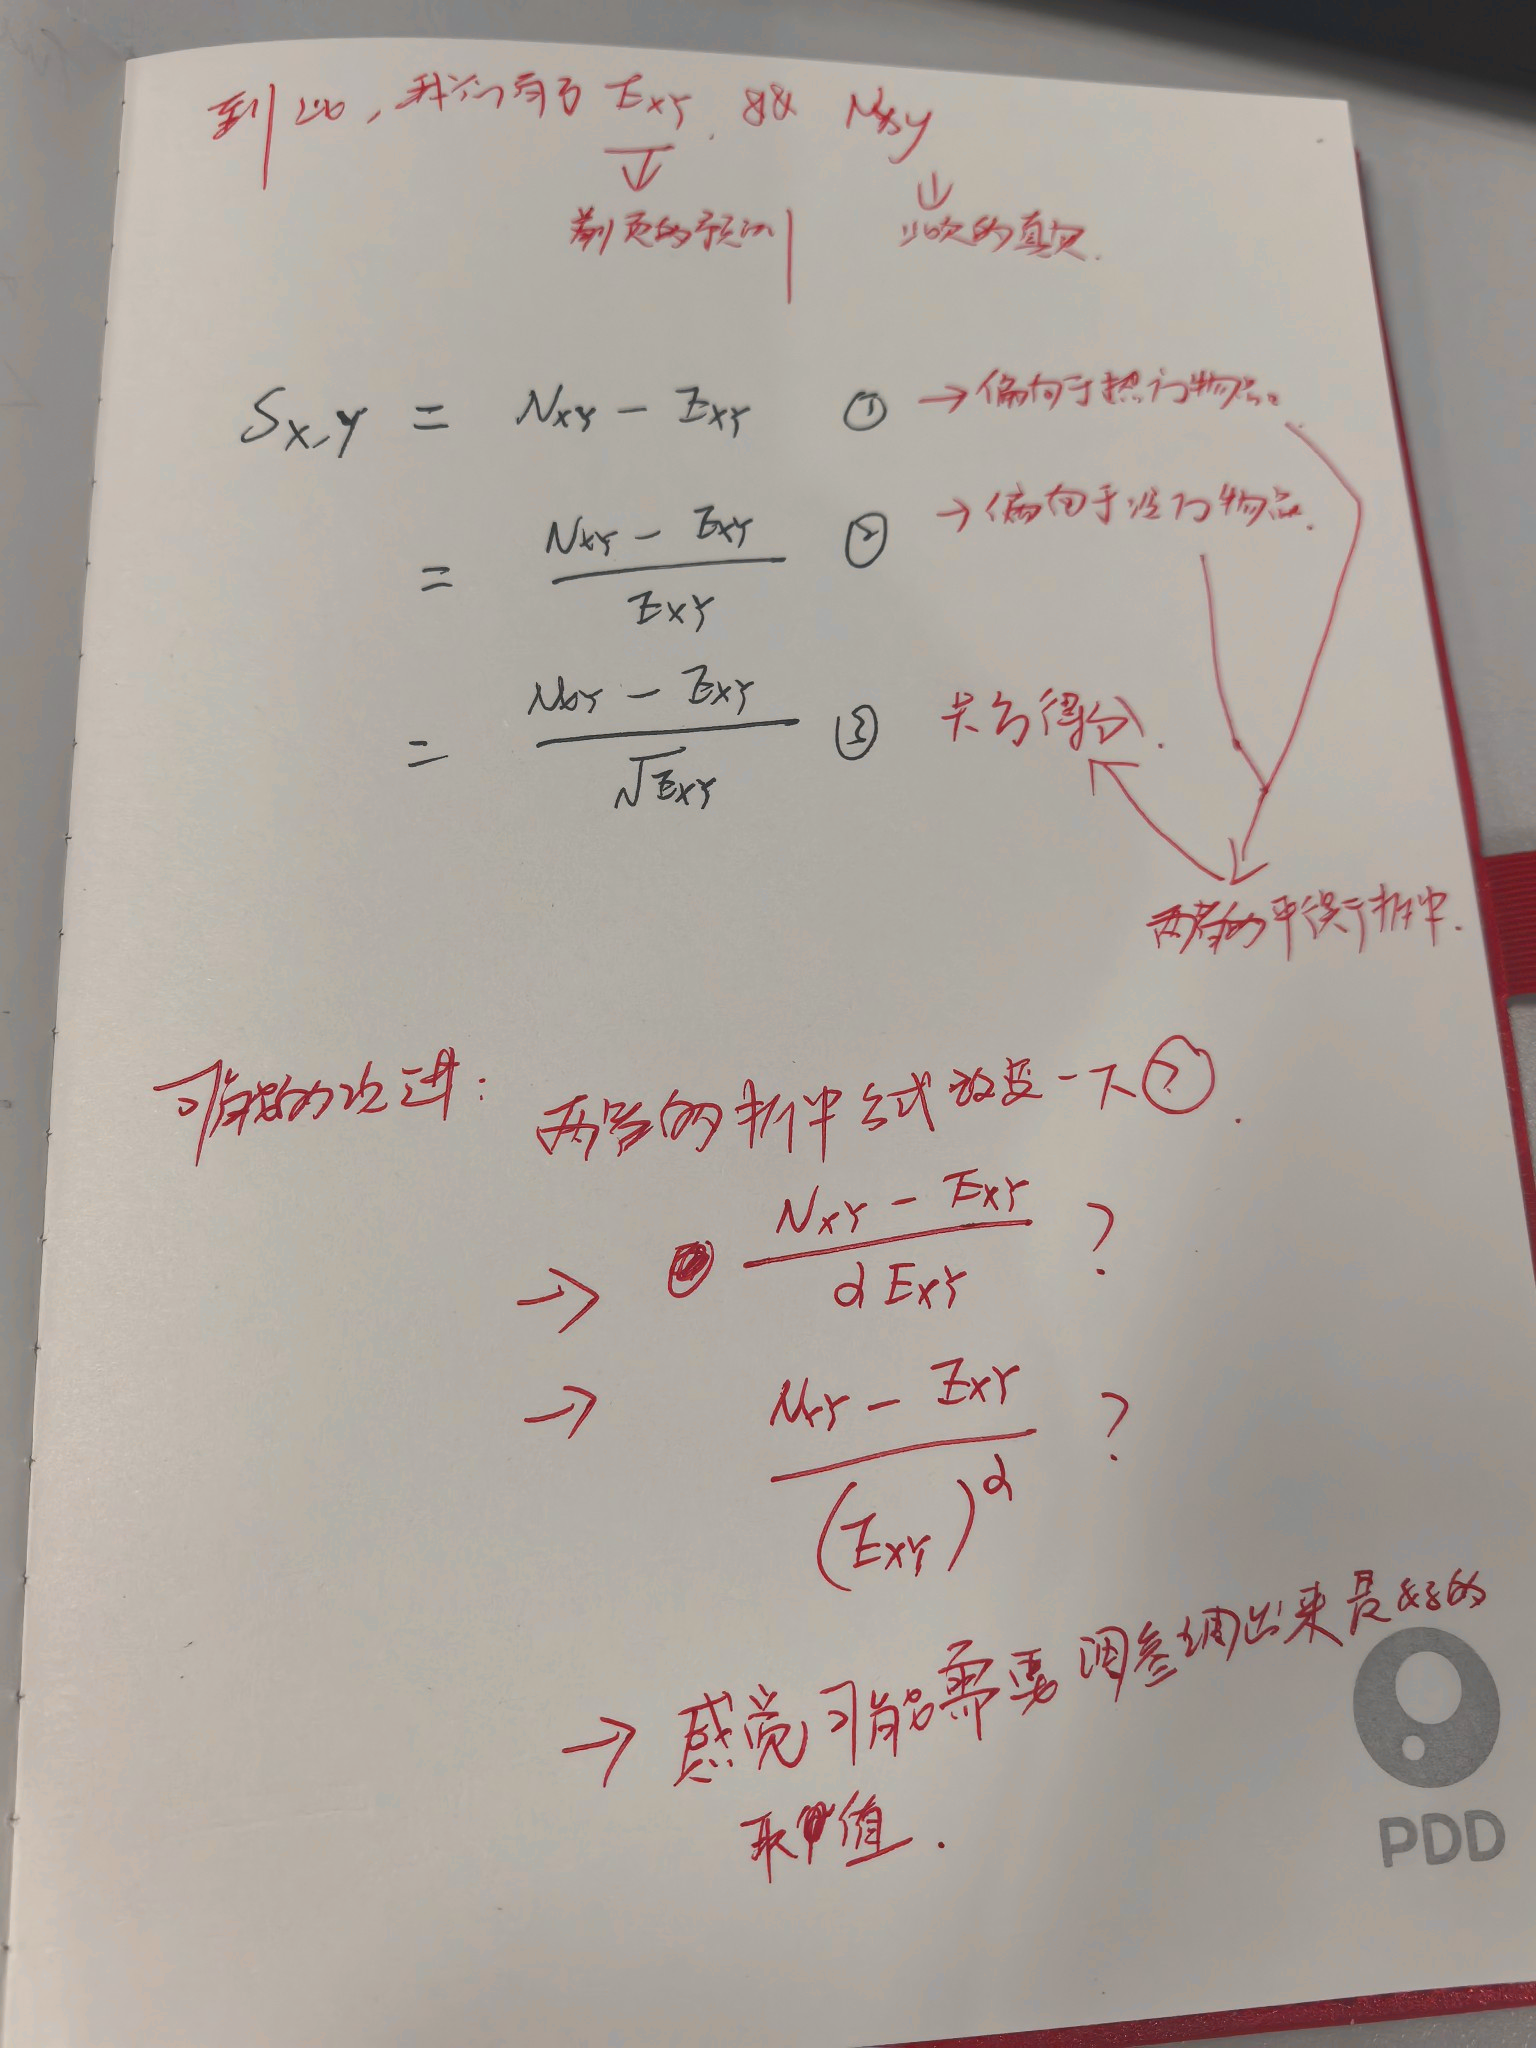 到此,我们有了 E_XY && N_XY
↓ ↓
前页的预测 此次的真实.
S_X,Y = N_XY - E_XY ① → 偏向于热门物品。
= (N_XY - E_XY) / E_XY ② → 偏向于冷门物品.
= (N_XY - E_XY) / √E_XY ③ 卡方得分.
两者的平衡于折中.
可能的改进: 两者的折中公式改变一下?.
→ (N_XY - E_XY) / α E_XY ?
→ (N_XY - E_XY) / (E_XY)^α ?
→ 感觉可能需要调参调出来最好的
取值.
PDD